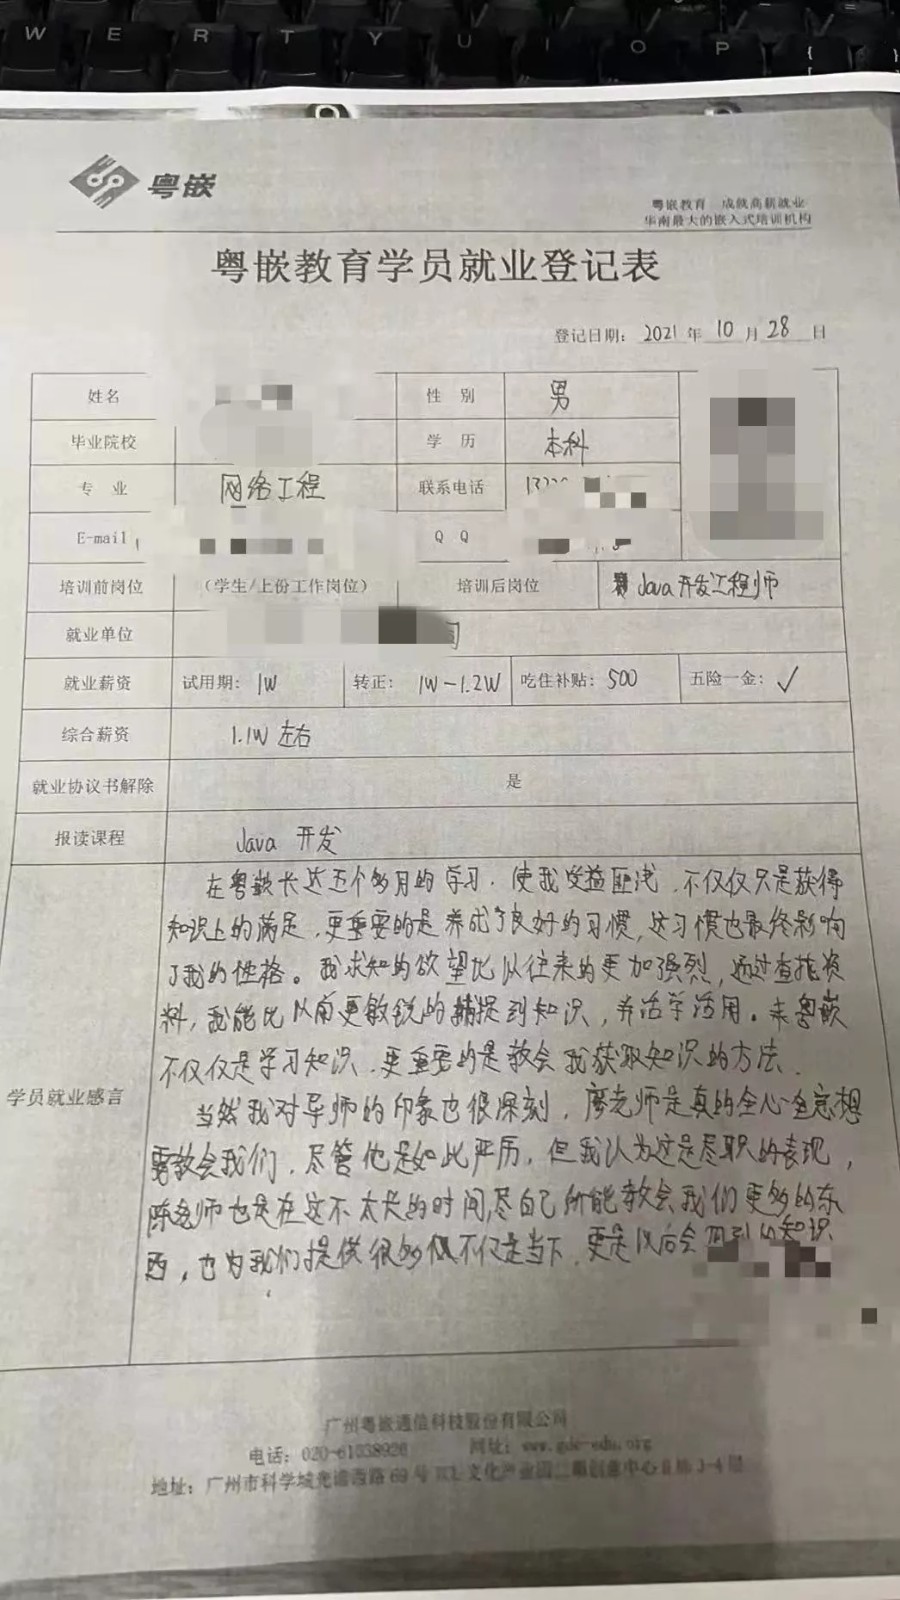 W E R T Y U I O P
粤嵌
粤嵌教育 成就高薪就业
华南最大的嵌入式培训机构
粤嵌教育学员就业登记表
登记日期: 2021 年 10 月 28 日
姓名 性 别 男
毕业院校 学 历 本科
专 业 网络工程 联系电话
E-mail Q Q
培训前岗位 (学生/上份工作岗位) 培训后岗位 Java 开发工程师
就业单位
就业薪资 试用期: 1W 转正: 1W-1.2W 吃住补贴: 500 五险一金: ✓
综合薪资 1.1W 左右
就业协议书解除 是
报读课程 Java 开发
学员就业感言
在粤嵌长达五个多月的学习, 使我受益匪浅, 不仅仅只是获得
知识上的满足, 更重要的是养成了良好的习惯, 这习惯也最终影响
了我的性格。我求知的欲望比以往来的更加强烈, 通过查找资
料, 我能比以前更敏锐的捕捉到知识, 并活学活用。来粤嵌
不仅仅是学习知识, 更重要的是教会我获取知识的方法.
当然我对导师的印象也很深刻, 廖老师是真的全心全意想
要教会我们, 尽管他是如此严历, 但我认为这是尽职的表现,
陈老师也是在这不太长的时间,尽自己所能教会我们更多的东
西, 也为我们提供很多 不仅是当下, 更是以后会 的知识
广州粤嵌通信科技股份有限公司
电话: 020-61038920 网址: www.gdc-edu.org
地址: 广州市科学城光谱西路 69 号 TCL 文化产业园二期创意中心 栋 3-4 层